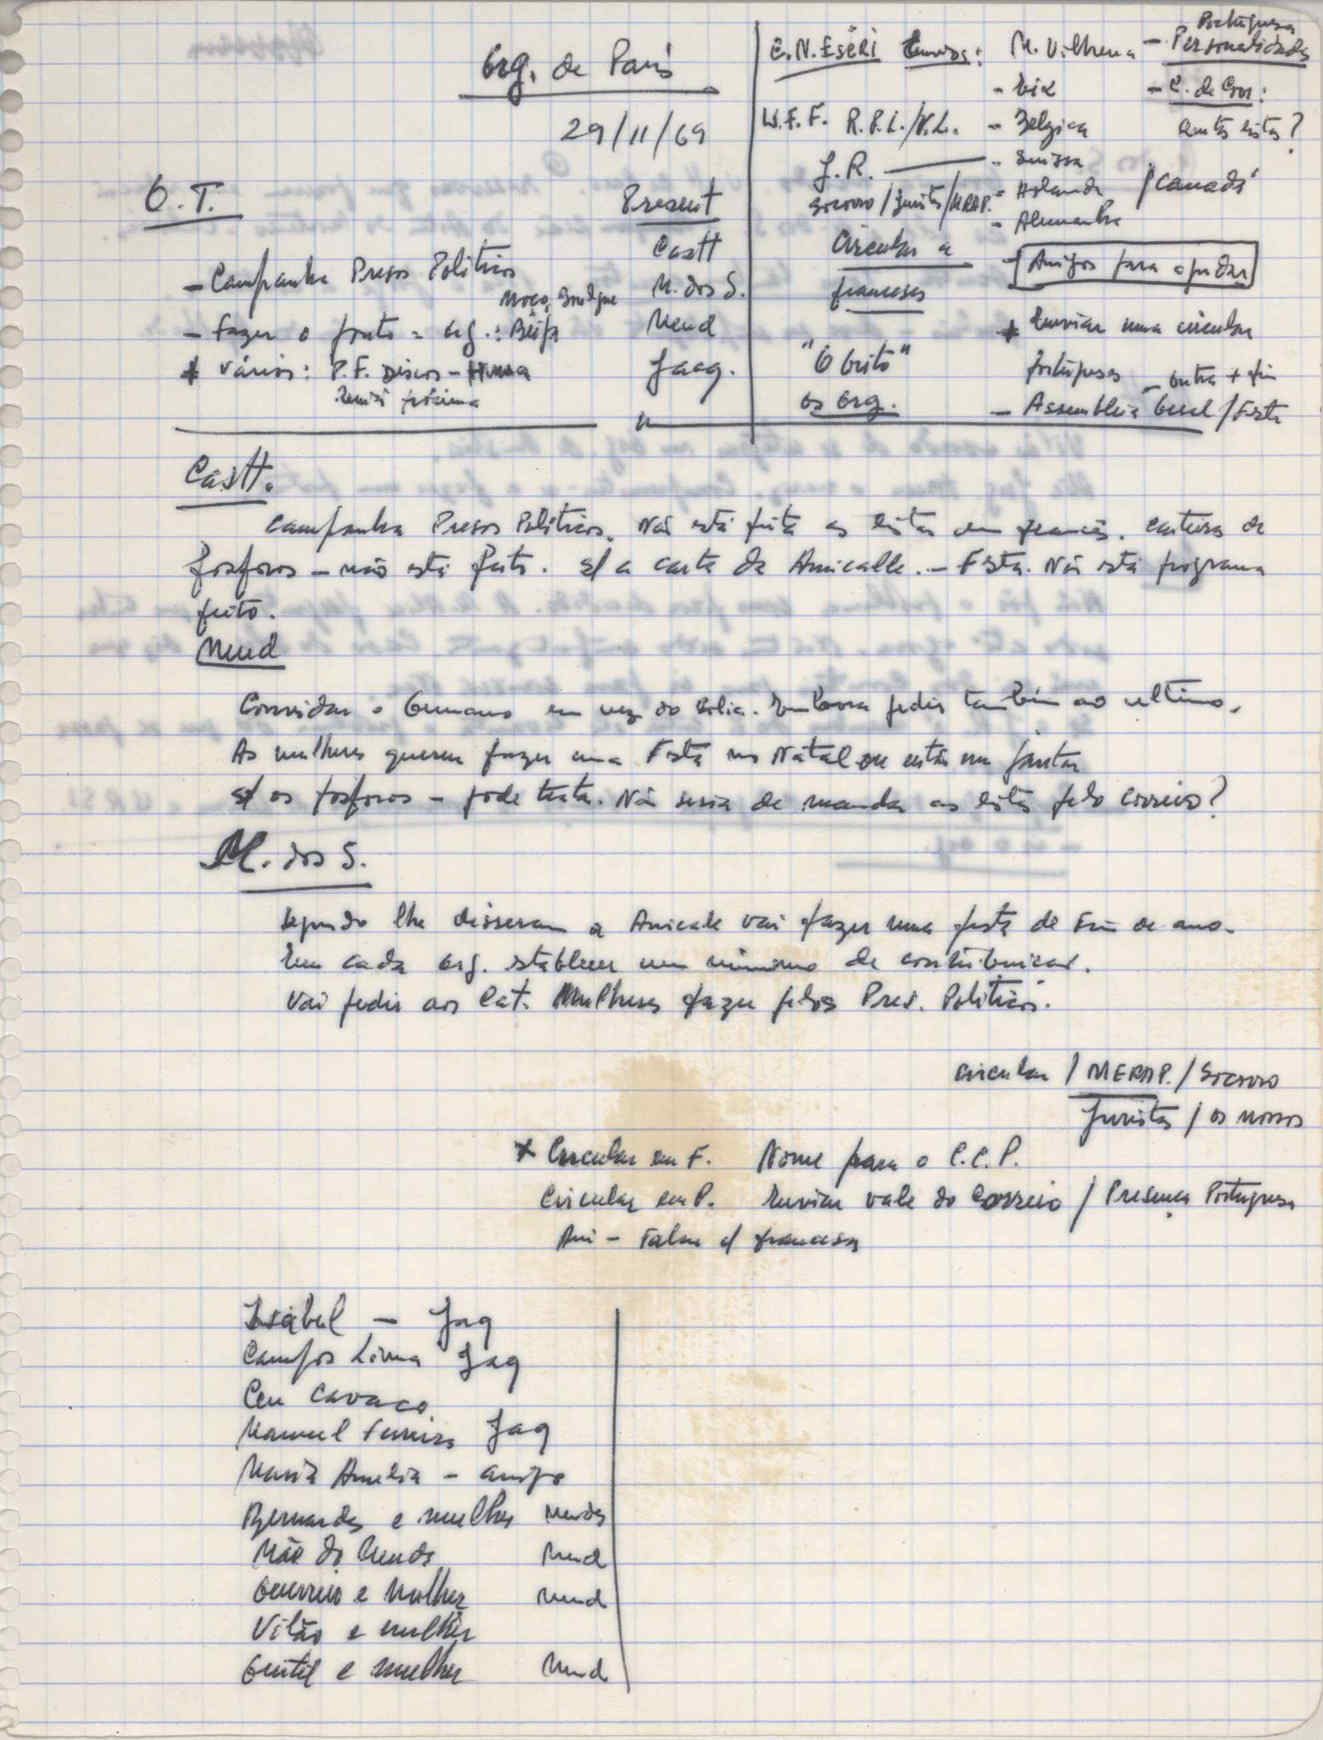 Org. de Paris
29/11/69
O.T.
Present
- Campanha Presos Politicos
Castt
M. dos S.
- Fazer o ponto = Org.:
Mend
* Vários: P.F. Discos -
Jacq.
M. Vilhena - Portuguesa Personalidades
W.F.F. R.P.L./V.L. - Belgica
J.R. - Suissa
Socorro / Juristas / MRAP. - Holanda / Canadá
- Alemanha
Circular a
franceses
- Amigos para ajudar
* Enviar uma circular
portugueses - outra + fim
"O Grito"
os org.
- Assembleia Geral / Festa
Castt.
Campanha Presos Politicos. Não está feita as listas em francês. Carteira de
fosforos - não está feito. s/ a carta da Amicalle. - Festa. Não está programa
feito.
Mend
Convidar o Germano em vez do . Embora pedir também ao ultimo.
As mulheres querem fazer uma Festa no Natal ou então um jantar
s/ os fosforos - pode tratar. Não seria de mandar as listas pelo correio?
M. dos S.
Segundo lhe disseram a Amicale vai fazer uma festa de Fim de ano.
Em cada org. establecer um minimo de contribuição.
Vai pedir aos Cat. Mulheres fazer pelos Pres. Politicos.
circular / MERAP. / Socorro
Juristas / os nossos
* Circular em F. Nome para o C.C.P.
Circular em P. Enviar vale do Correio / Presença Portuguesa
Ami - Falar c/ franceses
Isabel - Jaq
Campos Lima Jaq
Ceu Cavaco
Manuel Ferreira Jaq
Maria Amelia - amigo
Bernardes e mulher Mendes
Mãe do Mends Mend
Guerreiro e Mulher Mend
Vilão e mulher
Gentil e mulher Mend